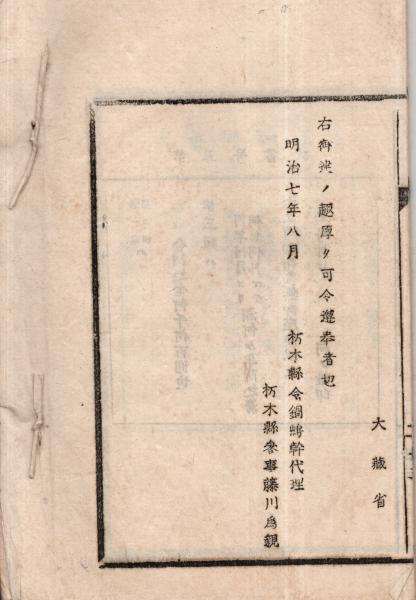 大藏省
右御達ノ趣厚ク可令遵奉者也
明治七年八月
栃木縣令鍋嶋幹代理
栃木縣參事藤川爲親